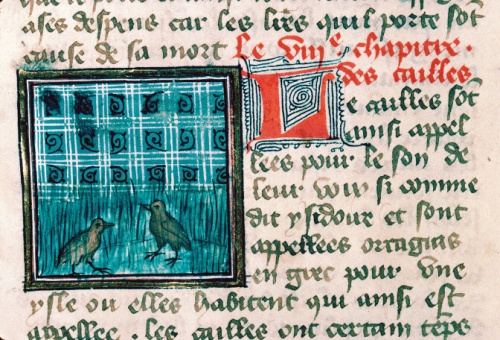 ases despens car les lires quil porte sōt
cause de sa mort Le viijᵉ. chapitre.
des cailles
Le cailles sōt
ainsi appel
lees pour le son de
leur voix si comme
dit ysidore et sont
appellees ortagias
en grec pour vne
ysle ou elles habitent qui ainsi est
appellee. les cailles ont certain tēps